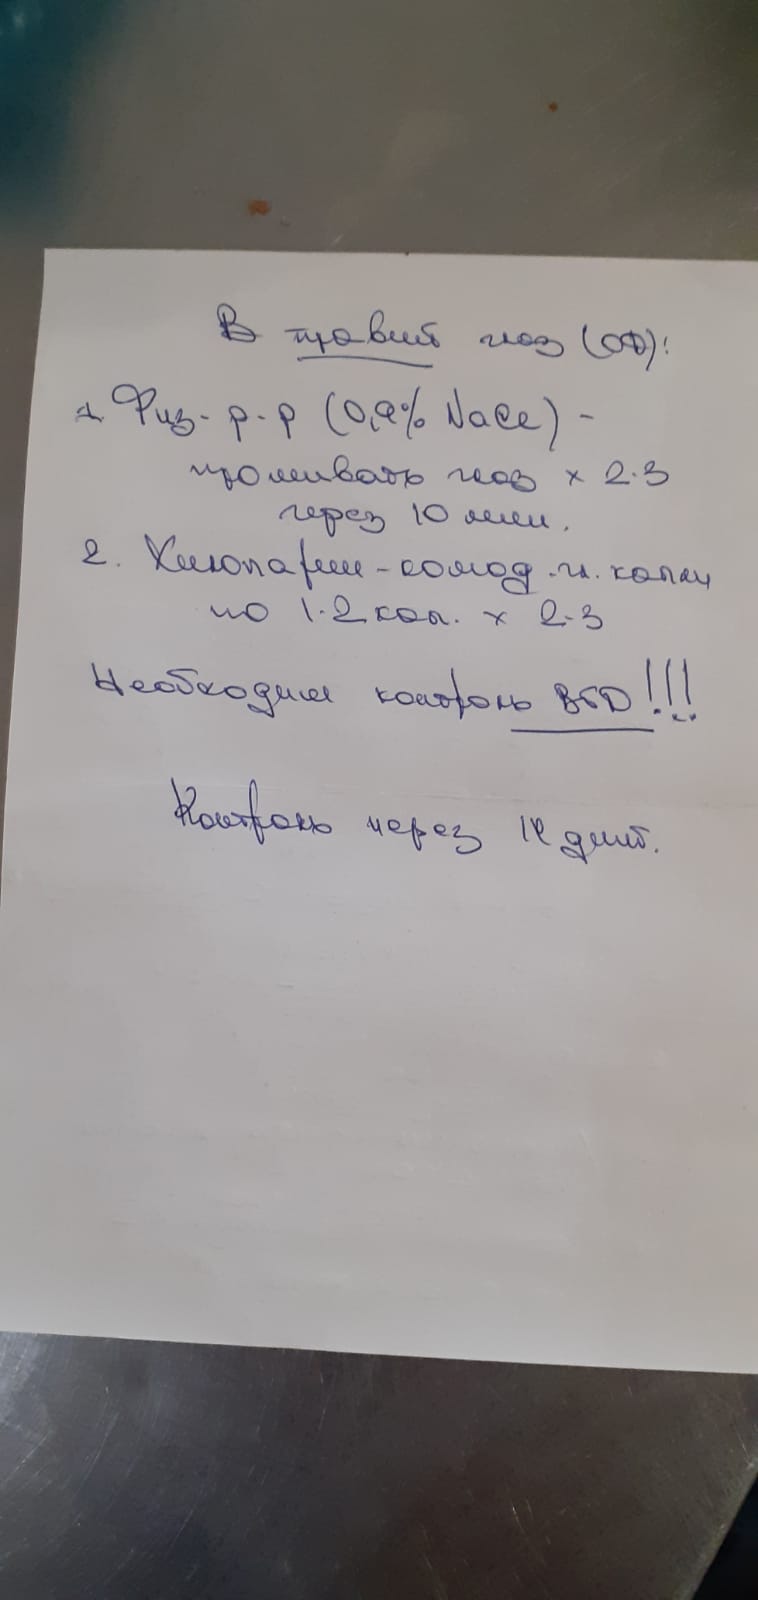 В правый глаз (OD):
1. Физ-р-р (0,9% NaCl) -
промывать глаз x 2-3
через 10 мин.
2. Хилопарин-комод гл. капли
по 1-2 кап. x 2-3
Необходим контроль ВГД!!!
Контроль через дней.